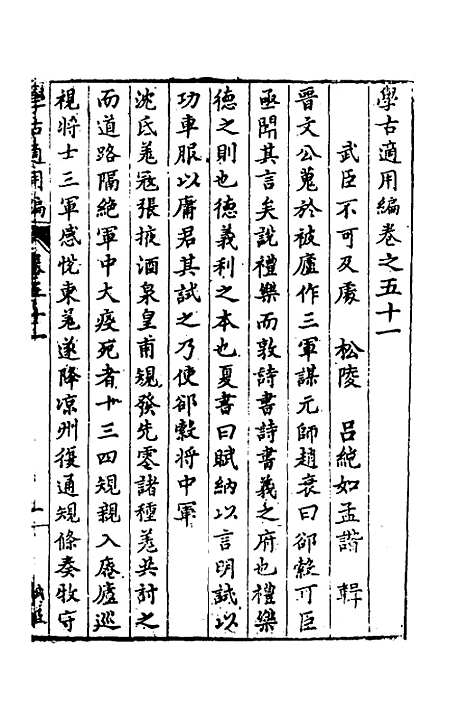 學古適用編卷之五十一
武臣不可及處　松陵　呂純如孟諧　輯
晉文公蒐於被廬作三軍謀元帥趙衰曰郤縠可臣
亟聞其言矣說禮樂而敦詩書詩書義之府也禮樂
德之則也德義利之本也夏書曰賦納以言明試以
功車服以庸君其試之乃使郤縠將中軍
沈氐羌寇張掖酒泉皇甫規發先零諸種羌共討之
而道路隔絶軍中大疫死者十三四規親入庵廬巡
視將士三軍感悅東羌遂降凉州復通規條奏牧守
學古適用編